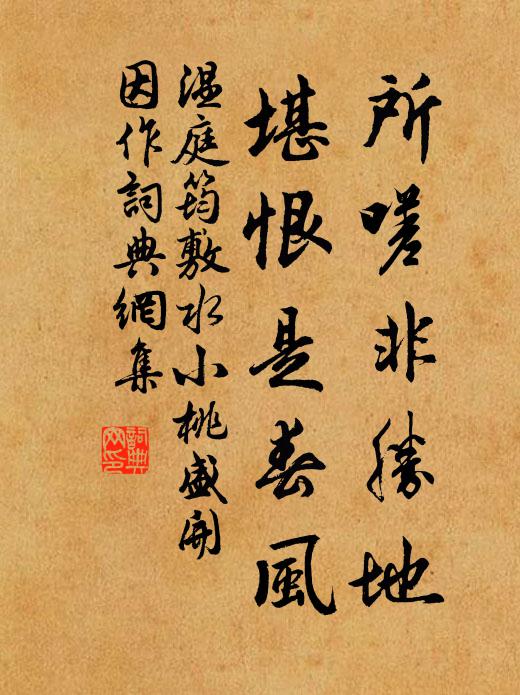 所嗟非勝地
堪恨是春風
温庭筠敷水小桃盛開
因作詞典網集
詞典網印